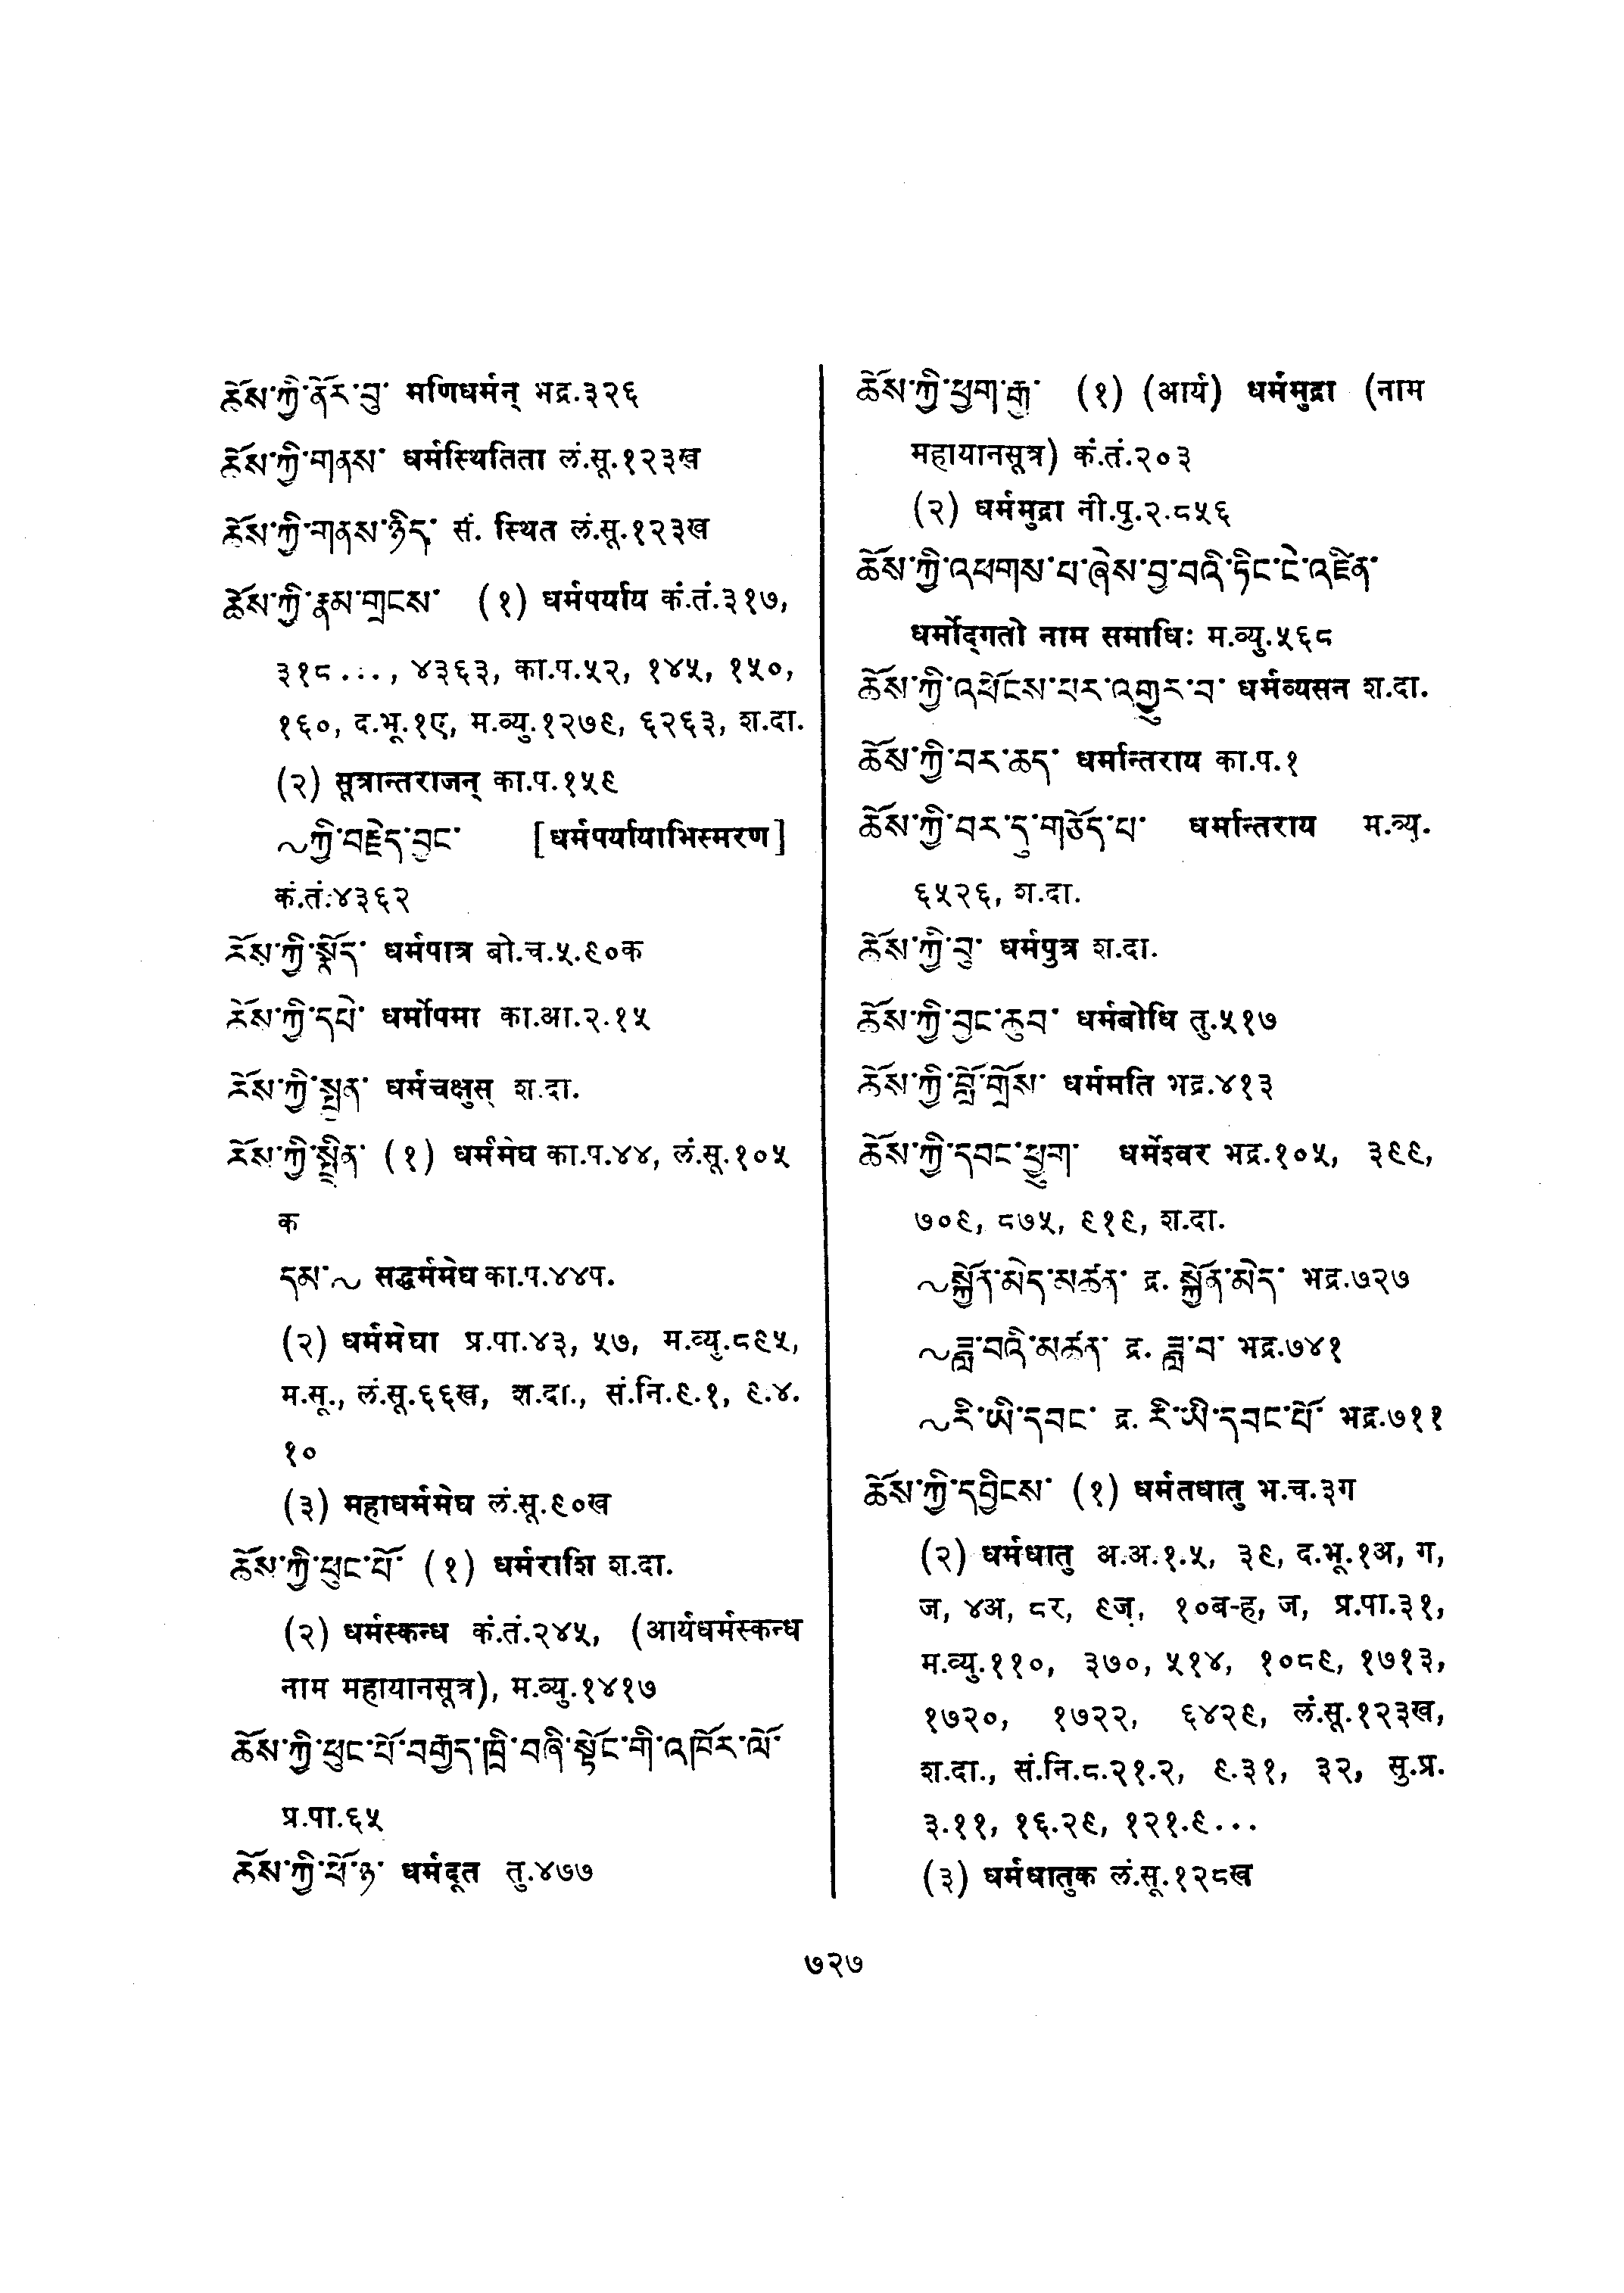 ཆོས་ཀྱི་ནོར་བུ་ मणिधर्मन् भद्र.३२६
ཆོས་ཀྱི་གནས་ धर्मस्थितिता लं.सू.१२३ख
ཆོས་ཀྱི་གནས་ཉིད་ सं. स्थित लं.सू.१२३ख
ཆོས་ཀྱི་རྣམ་གྲངས་ (१) धर्मपर्याय कं.तं.३१७,
३१८..., ४३६३, का.प.५२, १४५, १५०,
१६०, द.भू.१ए, म.व्यु.१२७९, ६२६३, श.दा.
(२) सूत्रान्तराजन् का.प.१५९
~ཀྱི་བརྗེད་བྱང་ [धर्मपर्यायाभिस्मरण]
कं.तं.४३६२
ཆོས་ཀྱི་སྣོད་ धर्मपात्र बो.च.५.९०क
ཆོས་ཀྱི་དཔེ་ धर्मोपमा का.आ.२.१५
ཆོས་ཀྱི་སྤྱན་ धर्मचक्षुस् श.दा.
ཆོས་ཀྱི་སྤྲིན་ (१) धर्ममेघ का.प.४४, लं.सू.१०५
क
དམ་~ सद्धर्ममेघ का.प.४४प.
(२) धर्ममेघा प्र.पा.४३, ५७, म.व्यु.८९५,
म.सू., लं.सू.६६ख, श.दा., सं.नि.९.१, ९.४.
१०
(३) महाधर्ममेघ लं.सू.९०ख
ཆོས་ཀྱི་ཕུང་པོ་ (१) धर्मराशि श.दा.
(२) धर्मस्कन्ध कं.तं.२४५, (आर्यधर्मस्कन्ध
नाम महायानसूत्र), म.व्यु.१४१७
ཆོས་ཀྱི་ཕུང་པོ་བརྒྱད་ཁྲི་བཞི་སྟོང་གི་འཁོར་ལོ་
प्र.पा.६५
ཆོས་ཀྱི་ཕོ་ཉ་ धर्मदूत तु.४७७
ཆོས་ཀྱི་ཕྱག་རྒྱ་ (१) (आर्य) धर्ममुद्रा (नाम
महायानसूत्र) कं.तं.२०३
(२) धर्ममुद्रा नी.पु.२.८५६
ཆོས་ཀྱི་འཕགས་པ་ཞེས་བྱ་བའི་ཏིང་ངེ་འཛིན་
धर्मोद्गतो नाम समाधिः म.व्यु.५६८
ཆོས་ཀྱི་འཕོངས་པར་འགྱུར་བ་ धर्मव्यसन श.दा.
ཆོས་ཀྱི་བར་ཆད་ धर्मान्तराय का.प.१
ཆོས་ཀྱི་བར་དུ་གཅོད་པ་ धर्मान्तराय म.व्यु.
६५२६, श.दा.
ཆོས་ཀྱི་བུ་ धर्मपुत्र श.दा.
ཆོས་ཀྱི་བྱང་ཆུབ་ धर्मबोधि तु.५१७
ཆོས་ཀྱི་བློ་གྲོས་ धर्ममति भद्र.४१३
ཆོས་ཀྱི་དབང་ཕྱུག་ धर्मेश्वर भद्र.१०५, ३९९,
७०९, ८७५, ९१९, श.दा.
~སྐྱོན་མེད་མཚན་ द्र. སྐྱོན་མེད་ भद्र.७२७
~ཟླ་བའི་མཚན་ द्र. ཟླ་བ་ भद्र.७४१
~རི་ཡི་དབང་ द्र. རི་ཡི་དབང་པོ་ भद्र.७११
ཆོས་ཀྱི་དབྱིངས་ (१) धर्मतधातु भ.च.३ग
(२) धर्मधातु अ.अ.१.५, ३९, द.भू.१अ, ग,
ज, ४अ, ८र, ९ज, १०ब-ह, ज, प्र.पा.३१,
म.व्यु.११०, ३७०, ५१४, १०८९, १७१३,
१७२०, १७२२, ६४२९, लं.सू.१२३ख,
श.दा., सं.नि.८.२१.२, ९.३१, ३२, सु.प्र.
३.११, १६.२९, १२१.९...
(३) धर्मधातुक लं.सू.१२८ख
७२७